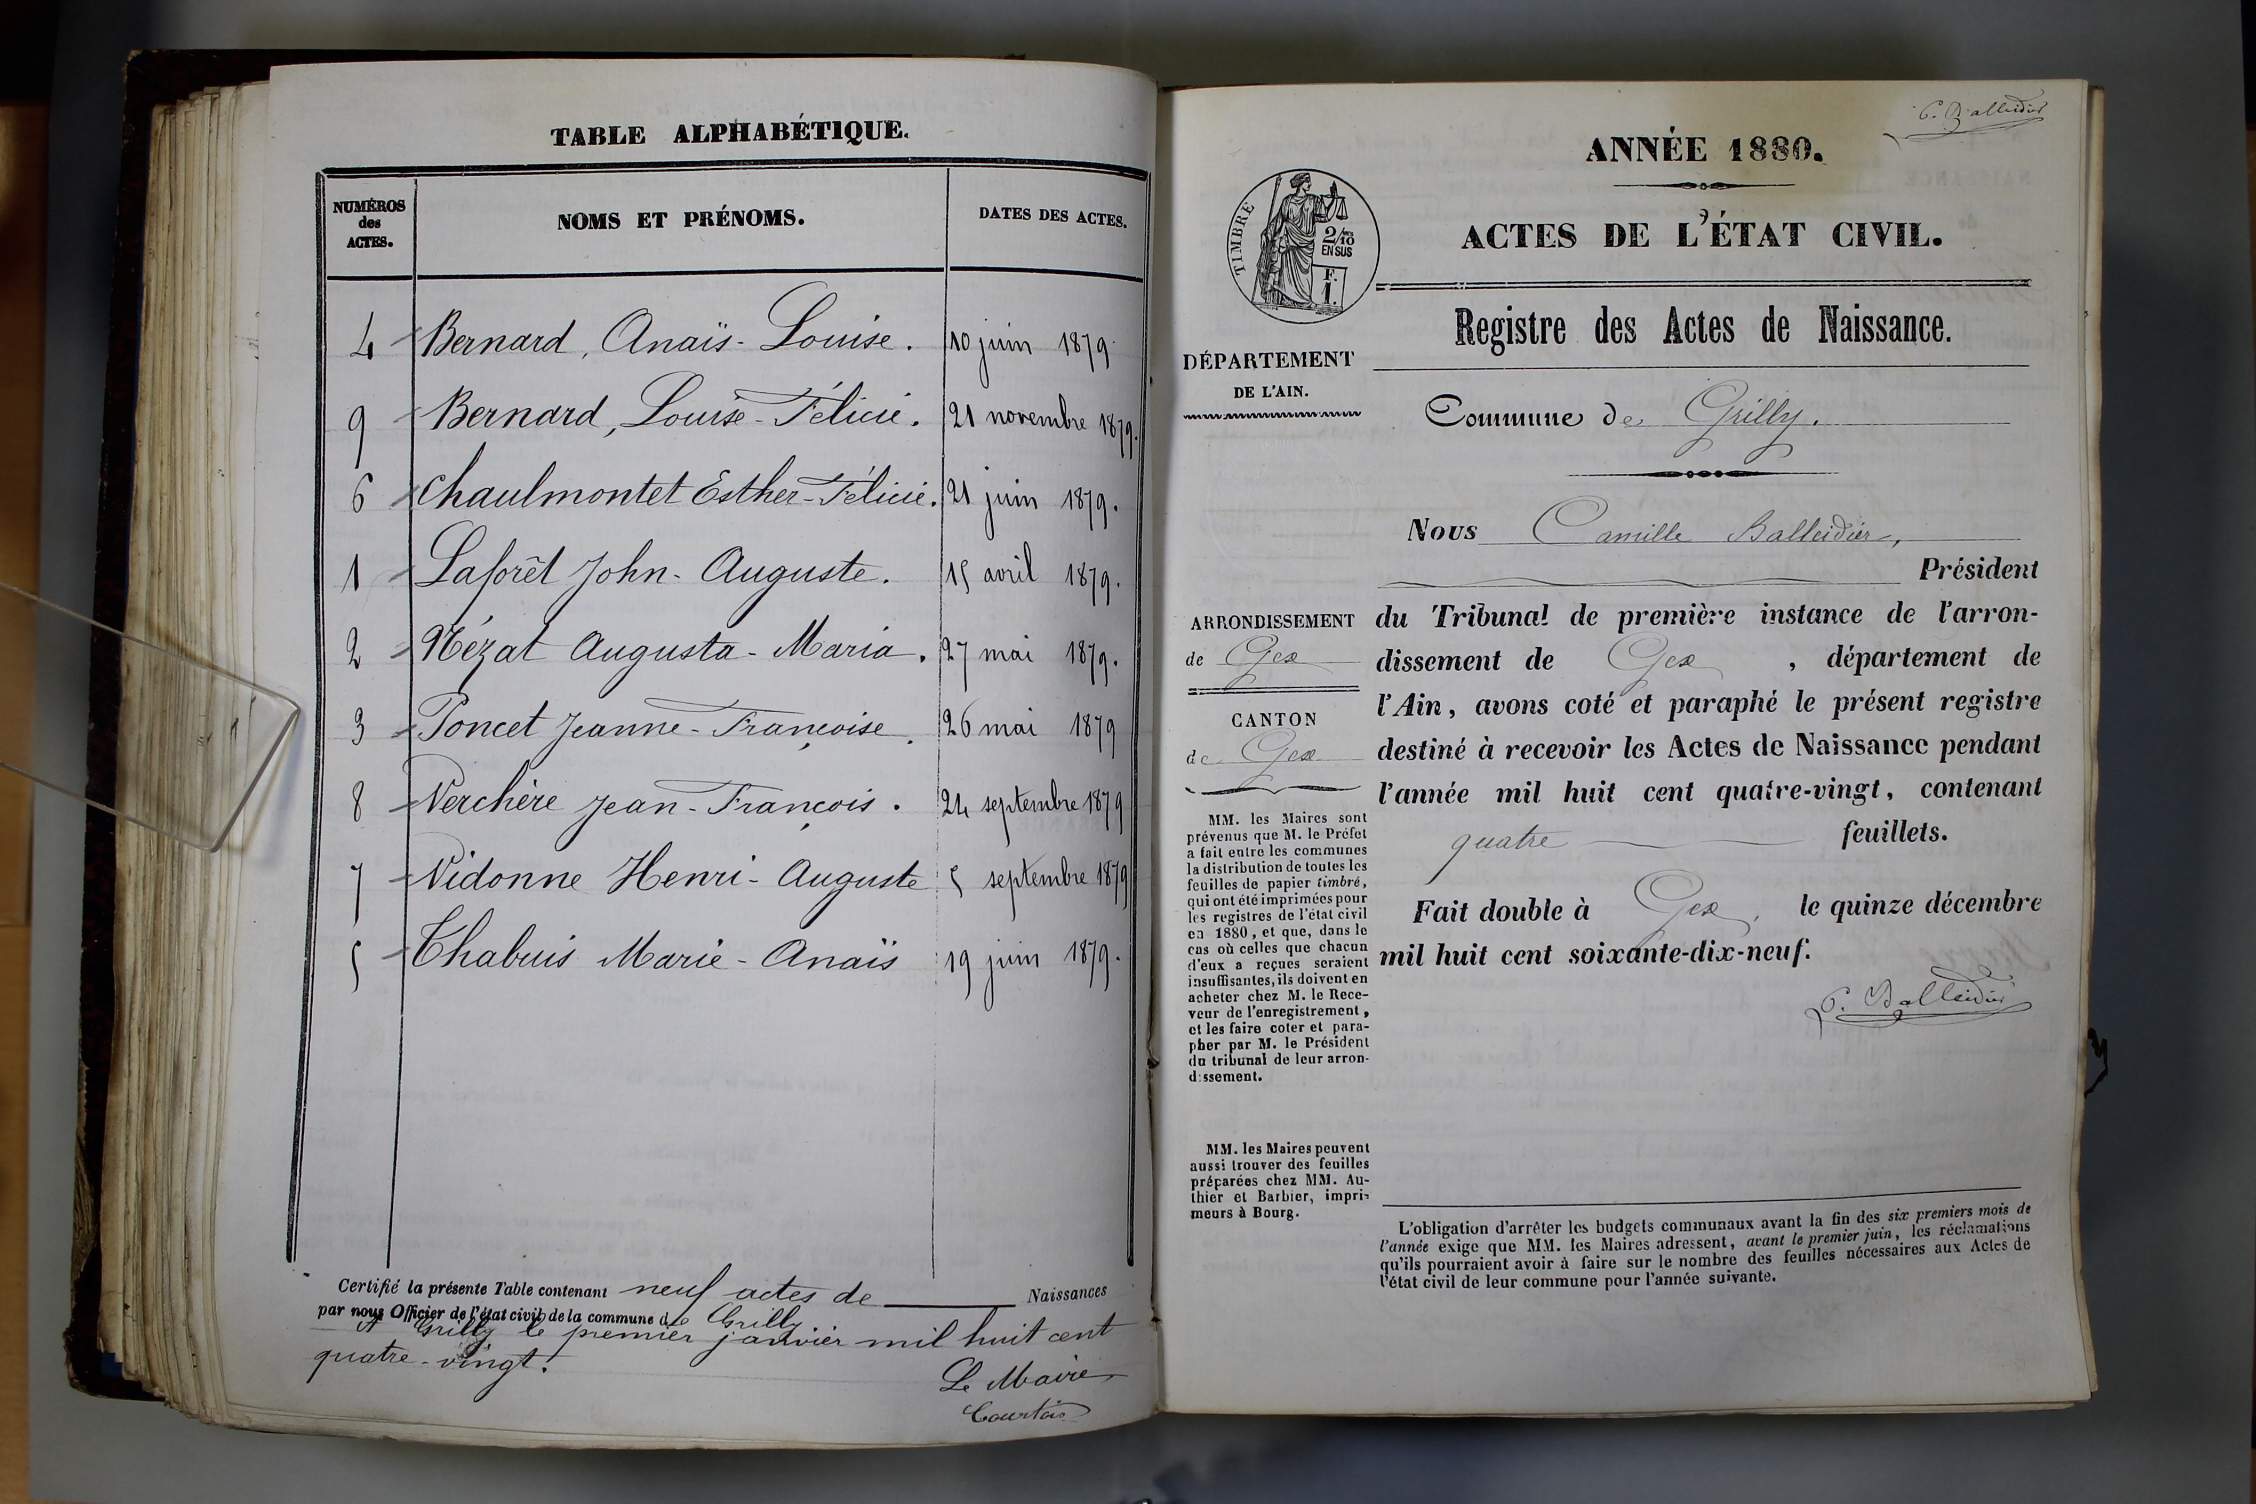 TABLE ALPHABÉTIQUE.
NUMÉROS des ACTES.
NOMS ET PRÉNOMS.
DATES DES ACTES.
4 Bernard, Anaïs-Louise. 10 juin 1879.
9 Bernard, Louise-Félicie. 21 novembre 1879.
6 Chaulmontet Esther-Félicie. 21 juin 1879.
1 Laforêt John-Auguste. 15 avril 1879.
2 Nézat Augusta-Maria. 27 mai 1879.
3 Poncet Jeanne-Françoise. 26 mai 1879
8 Verchère Jean-François. 24 septembre 1879
7 Vidonne Henri-Auguste 5 septembre 1879
5 Thabuis Marie-Anaïs 19 juin 1879.
Certifié la présente Table contenant neuf actes de Naissances
par nous Officier de l'état civil de la commune de Grilly
A Grilly le premier janvier mil huit cent
quatre-vingt.
Le Maire
Courtois
C. Balleidier
ANNÉE 1880.
ACTES DE L'ÉTAT CIVIL.
TIMBRE
2/10
EN SUS
F.
1.
Registre des Actes de Naissance.
DÉPARTEMENT
DE L'AIN.
Commune de Grilly.
Nous Camille Balleidier,
Président
du Tribunal de première instance de l'arron-
dissement de Gex, département de
l'Ain, avons coté et paraphé le présent registre
destiné à recevoir les Actes de Naissance pendant
l'année mil huit cent quatre-vingt, contenant
quatre feuillets.
Fait double à Gex, le quinze décembre
mil huit cent soixante-dix-neuf.
C. Balleidier
ARRONDISSEMENT
de Gex
CANTON
de Gex
MM. les Maires sont
prévenus que M. le Préfet
a fait entre les communes
la distribution de toutes les
feuilles de papier timbré,
qui ont été imprimées pour
les registres de l'état civil
en 1880, et que, dans le
cas où celles que chacun
d'eux a reçues seraient
insuffisantes, ils doivent en
acheter chez M. le Rece-
veur de l'enregistrement,
et les faire coter et para-
pher par M. le Président
du tribunal de leur arron-
dissement.
MM. les Maires peuvent
aussi trouver des feuilles
préparées chez MM. Au-
thier et Barbier, impri-
meurs à Bourg.
L'obligation d'arrêter les budgets communaux avant la fin des six premiers mois de
l'année exige que MM. les Maires adressent, avant le premier juin, les réclamations
qu'ils pourraient avoir à faire sur le nombre des feuilles nécessaires aux Actes de
l'état civil de leur commune pour l'année suivante.